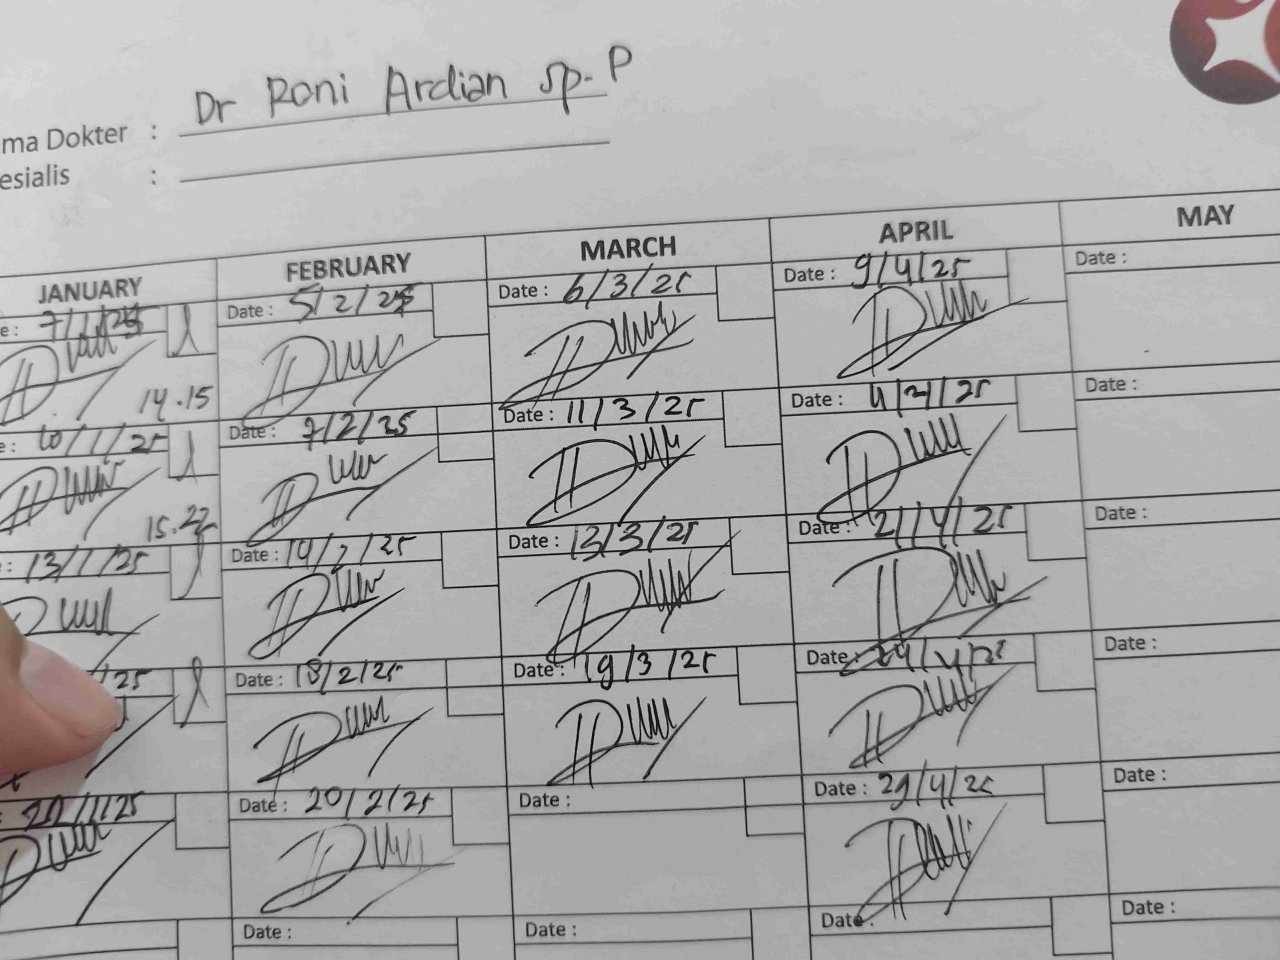 Dr Roni Ardian Sp. P
ma Dokter :
esialis :
JANUARY FEBRUARY MARCH APRIL MAY
e: 7/1/25 Date: 5/2/25 Date: 6/3/25 Date: 9/4/25 Date:
14.15
e: 10/1/25 Date: 7/2/25 Date: 11/3/25 Date: /25 Date:
15.22
: 13/1/25 Date: 14/2/25 Date: 13/3/25 Date: 21/4/25 Date:
/25 Date: 18/2/25 Date: 19/3/25 Date: 24/4/25 Date:
/1/25 Date: 20/2/25 Date: Date: 29/4/25 Date:
Date: Date: Date: Date: